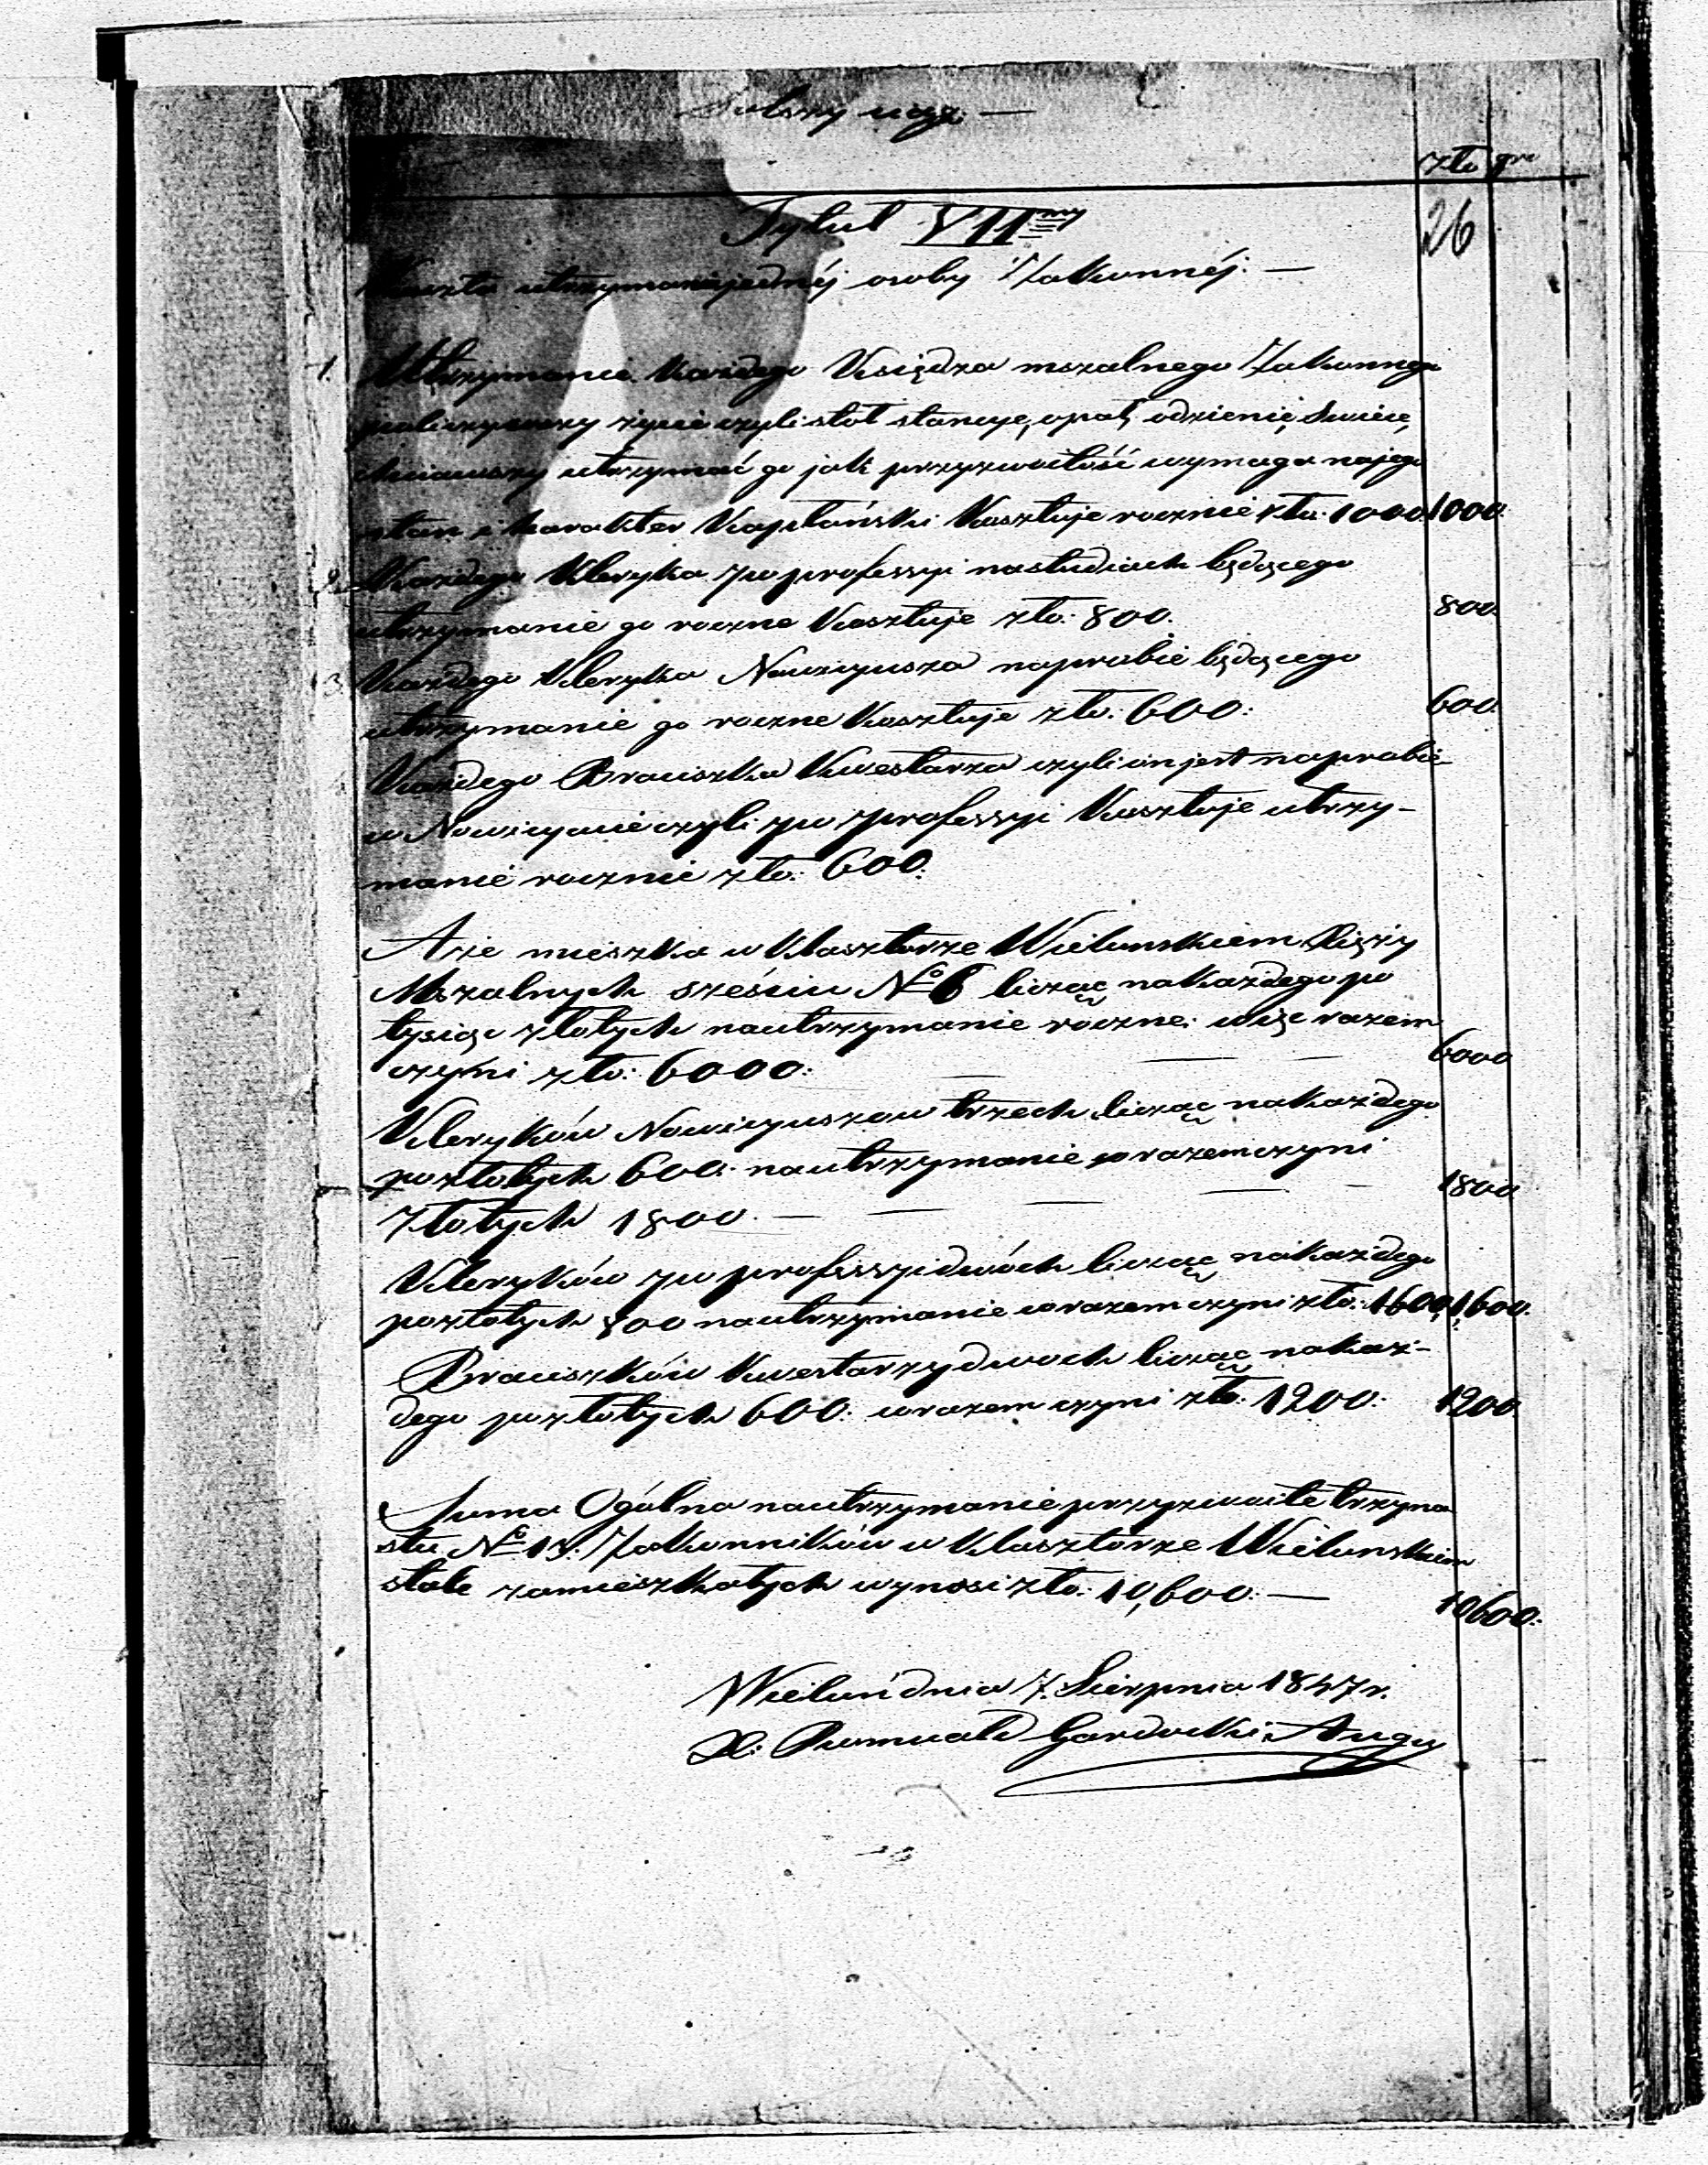 Dalszy ciąg. —
złto gr
26
Tytuł VIImy
Koszta utrzymania jednéj osoby Zakonnéj. —
1. Utrzymanie każdego Księdza mszalnego Zakonnego
policzywszy życie czyli stół stancye, opał, odzienie, Swiece,
chciawszy utrzymać go jak przyzwoitość wymaga na jego
stan i karakter Kapłański Kosztuje rocznie złto: 1000 1000.
2. Każdego Kleryka po professyi na studiach będącego
utrzymanie go roczne Kosztuje złto: 800. 800.
3. Każdego Kleryka Nowicyusza na probie będącego
utrzymanie go roczne Kosztuje złto: 600: 600.
Każdego Braciszka Kwestarza czyli on jest na probie
w Nowicyacie czyli po professyi Kosztuje utrzy-
manie rocznie złto: 600:
A że mieszka w Klasztorze Wieluńskiem Xięży
Mszalnych sześciu No 6 licząc na każdego po
tysiąc złotych na utrzymanie roczne: więc razem
czyni złto: 6000: — — — 6000
Kleryków Nowicyuszow trzech licząc na każdego
po złotych 600: na utrzymanie co razem czyni
Złotych 1800. — — — — — 1800
Kleryków po professyi dwóch licząc na każdego
po złotych 800 na utrzymanie co razem czyni złto: 1600, 1600.
Braciszków Kwestarzy dwoch licząc na każ-
dego po złotych 600: co razem czyni złto: 1200: 1200
Suma Ogólna na utrzymanie przyzwoite trzyna
stu No 13: Zakonników w Klasztorze Wieluńskiem
stale zamieszkałych wynosi złto: 10,600: — 10600:
Wieluń dnia 7. Sierpnia 1847 r.
X: Romuald Gardocki Augu